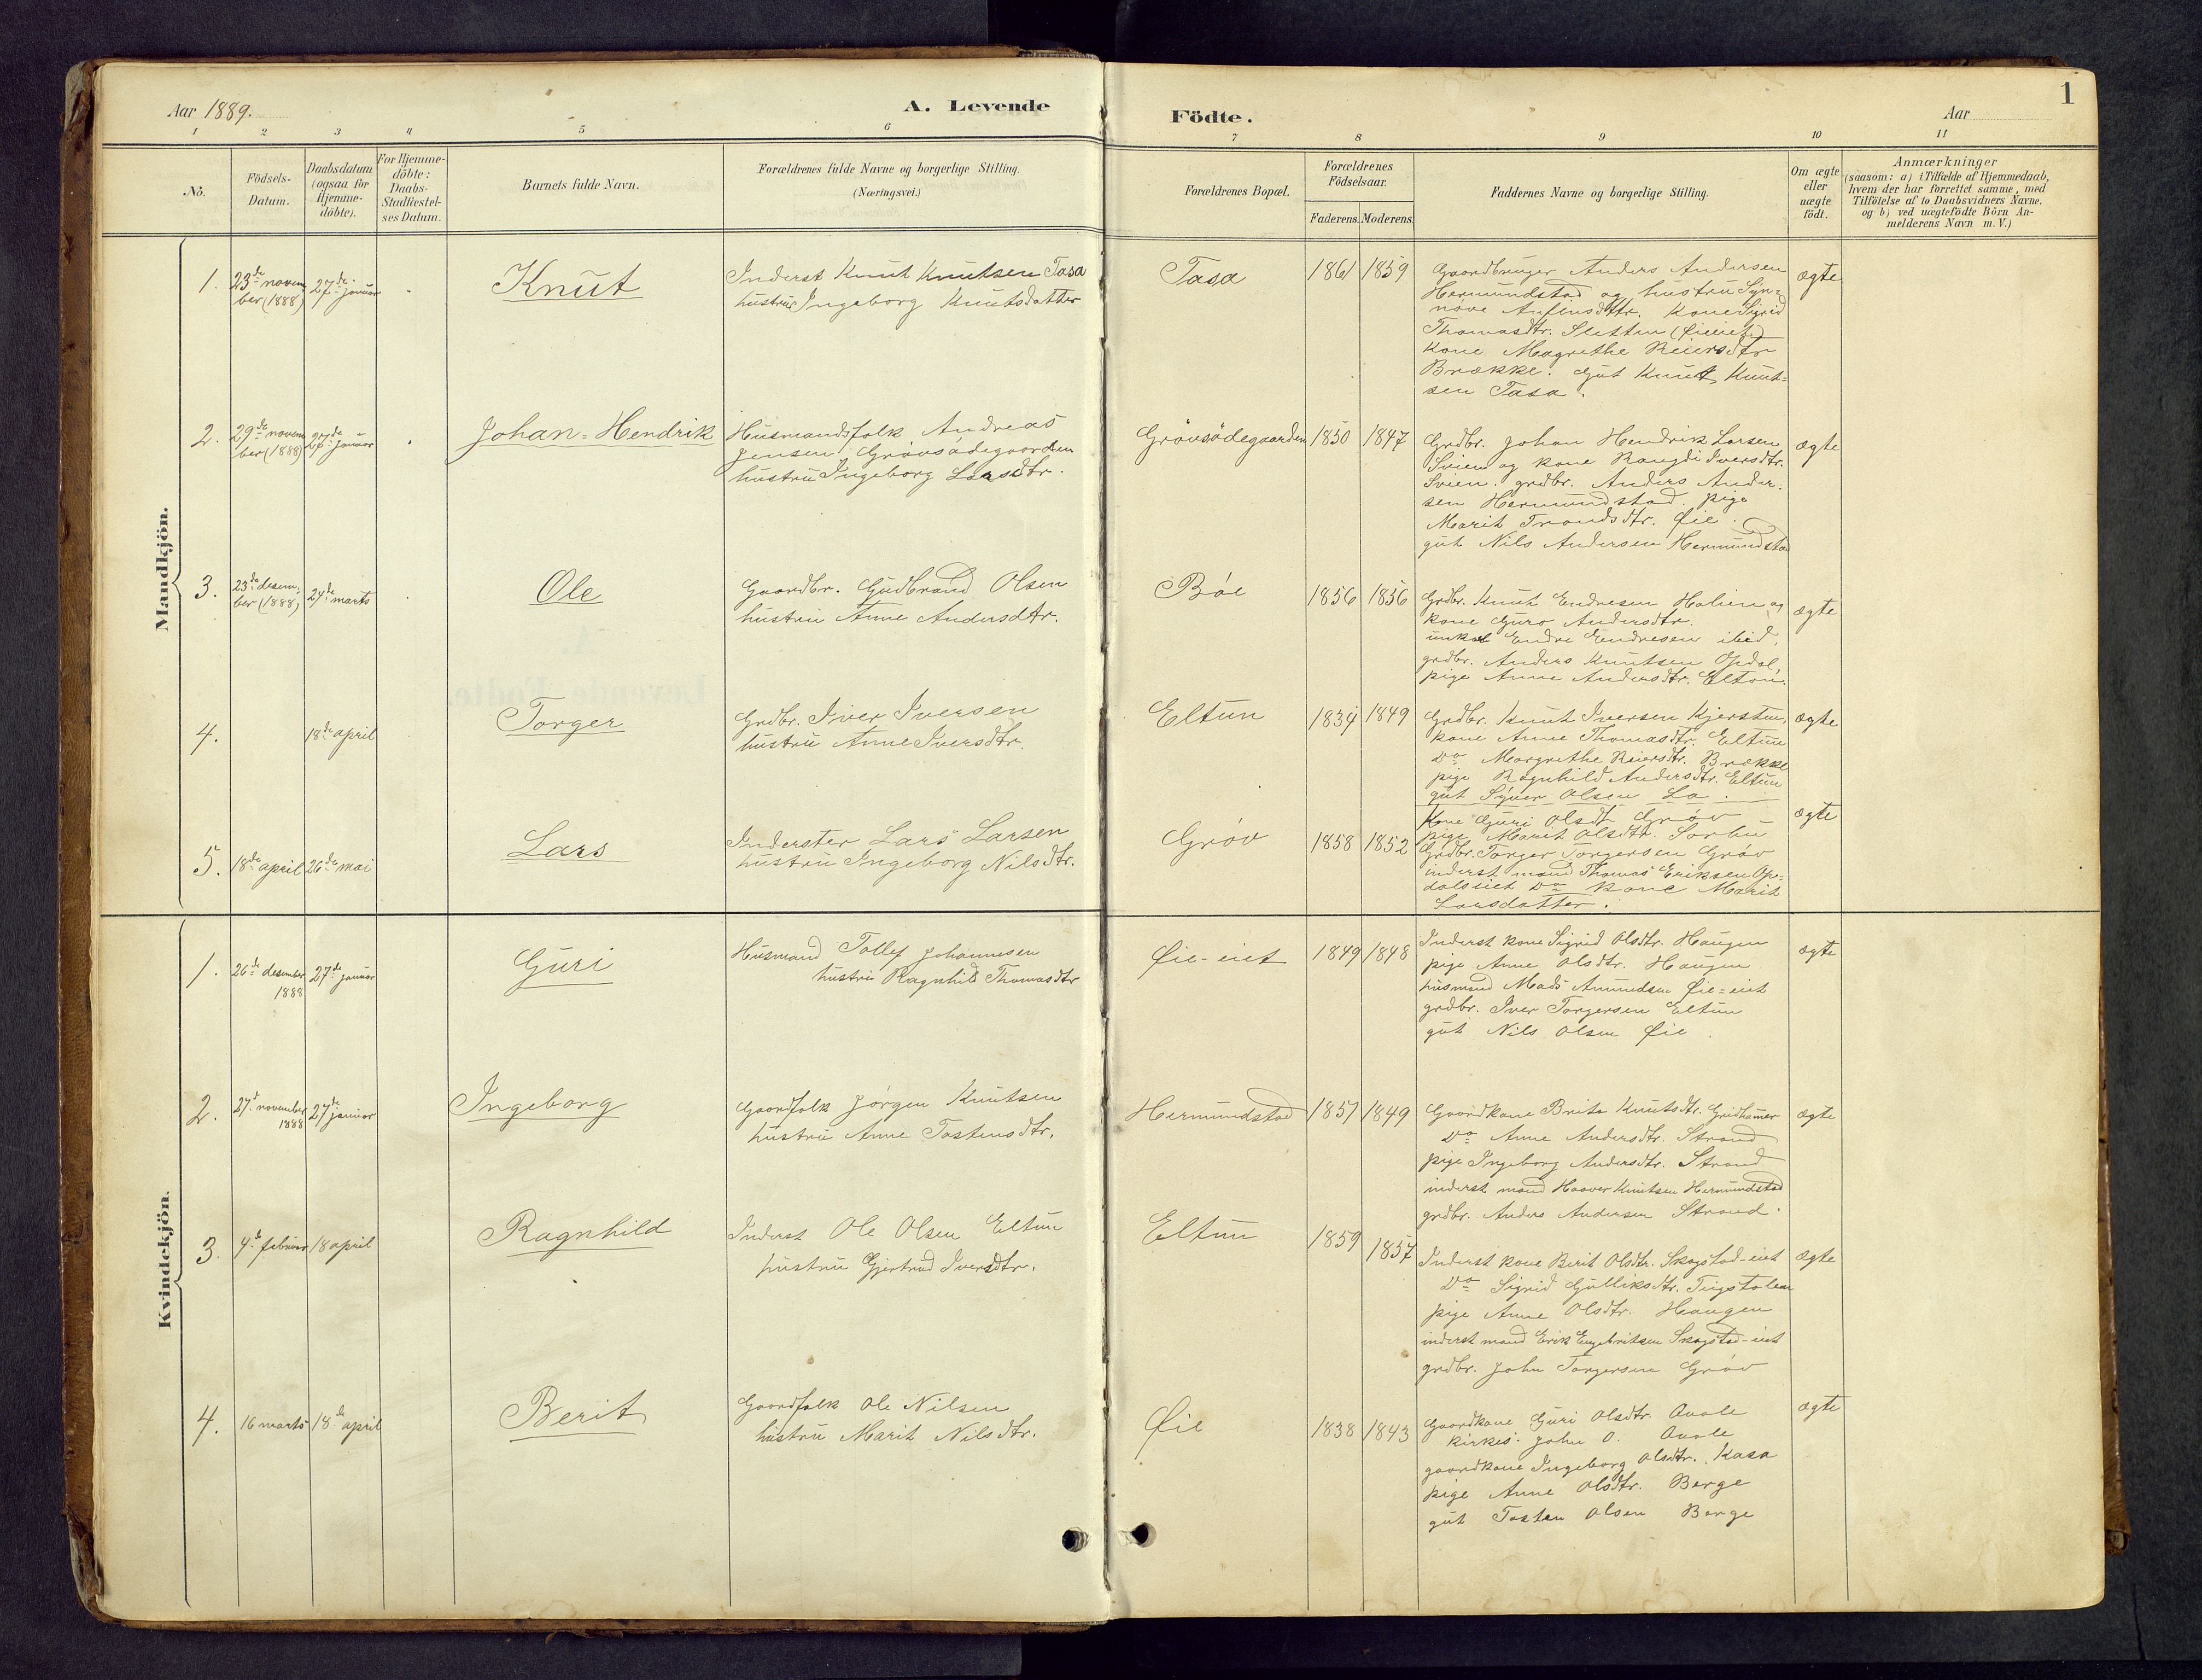 Aar 1889.
A. Levende
Födte.
Aar
1
1 2 3 4 5 6 7 8 9 10 11
No.
Födsels-
Datum.
Daabsdatum
(ogsaa for
Hjemme-
döbte).
For Hjemme-
döbte:
Daabs-
Stadfestel-
ses Datum.
Barnets fulde Navn.
Forældrenes fulde Navne og borgerlige Stilling.
(Næringsvei.)
Forældrenes Bopæl.
Forældrenes
Födselsaar.
Faderens. Moderens.
Faddernes Navne og borgerlige Stilling.
Om ægte
eller
uægte
födt.
Anmærkninger
(saasom: a) i Tilfælde af Hjemmedaab,
hvem der har forrettet samme, med
Tilföielse af to Daabsvidners Navne.
og b) ved uægtefödte Börn An-
melderens Navn m. V.)
Mandkjön.
1.
23de novem
ber (1888)
27de januar
Knut
Inderst Knut Knutsen Tasa
hustru Ingeborg Knutsdatter
Tasa
1861 1859
Gaardbruger Anders Andersen
Hermundstad og hustru Syn-
nøve Anfinsdttr. Kone Sigrid
Thomasdtr. Sletten (Øieeiet)
Kone Magrethe Reiersdtr
Brække. Gut Knut Knut-
sen Tasa.
ægte
2.
29de novem
ber (1888)
27de januar
Johan-Hendrik
Husmandsfolk Andreas
Jensen Grøvsødegaarden
hustru Ingeborg Larsdtr.
Grøvsødegaarden
1850 1847
Grdbr. Johan Hendrik Larsen
Svien og kone Rangdi Iversdtr.
Svien. grdbr. Anders Ander-
sen Hermundstad. pige
Marit Trondsdtr. Øie.
gut Nils Andersen Hermundstad
ægte
3.
23de desem-
ber (1888)
24de marts
Ole
Gaardbr. Gudbrand Olsen
hustru Anne Andersdtr.
Bøe
1856 1856
Grdbr. Knut Endresen Halien og
kone Guro Andersdtr.
unkal Endre Endresen ibid,
grdbr. Anders Knutsen Opdal,
pige Anne Andersdtr. Elton.
ægte
4.
18de april
Torger
Grdbr. Iver Iversen
hustru Anne Iversdtr.
Eltun
1834 1849
Grdbr. Knut Iversen Kjersten,
kone Anne Thomasdtr. Eltun
Do Margrethe Reiersdtr. Brække
pige Ragnhild Andersdtr. Eltun
gut Syver Olsen Lo.
ægte
5.
18de april
26de mai
Lars
Inderster Lars Larsen
hustru Ingeborg Nilsdtr.
Grøv
1858 1852
Kone Guri Olsdt Grøv
pige Marit Olsdtr. Sorbu
Grdbr. Torger Torgersen Grøv
inderst mand Thomas Eriksen Op-
dalseiet Do kone Marit
Larsdatter.
ægte
Kvindekjön.
1.
26de desember
1888
27de januar
Guri
Husmand Tollef Johannesen
hustru Ragnhild Thomasdtr
Øie-eiet
1849 1848
Inderst kone Sigrid Olsdtr. Haugen
pige Anne Olsdtr. Haugen
husmand Mads Amundsen Øie-eiet
grdbr. Iver Torgersen Eltun
gut Nils Olsen Øie.
ægte
2.
27d november
1888
27de januar
Ingeborg
Gaardfolk Jørgen Knutsen
hustru Anne Tostensdtr.
Hermundstad
1851 1849
Gaardkone Brita Knutsdtr. Gridhamer
Do Anne Andersdtr. Strand
pige Ingeborg Andersdtr. Strand
inderst mand Haaver Knutsen Hermundstad
grdbr. Anders Andersen Strand.
ægte
3.
4de februar
18 april
Ragnhild
Inderst Ole Olsen Eltun
hustru Gjertrud Iversdtr.
Eltun
1859
1857
Inderst kone Berit Olsdtr. Skogstad-eiet
Do Sigrid Gulliksdtr. Tingstolen
pige Anne Olsdtr. Haugen
inderst mand Erik Engebritsen Skogstad-eiet
grdbr. John Torgersen Grøv
ægte
4.
16 marts
18de april
Berit
Gaardfolk Ole Nilsen
hustru Marit Nilsdtr.
Øie
1838 1843
Gaardkone Guri Olsdtr. Qvale
kirkes. John O. Qvale
gaardkone Ingeborg Olsdtr. Kasa
pige Anne Olsdtr. Berge
gut Tosten Olsen Berge
ægte